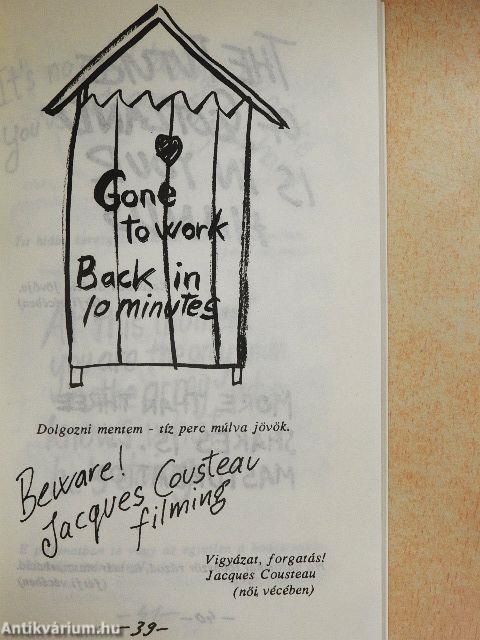 Gone
to work
Back in
10 minutes
Dolgozni mentem - tíz perc múlva jövök.
Beware!
Jacques Cousteau
filming
Vigyázat, forgatás!
Jacques Cousteau
(női vécében)
-39-
Antikvárium.hu